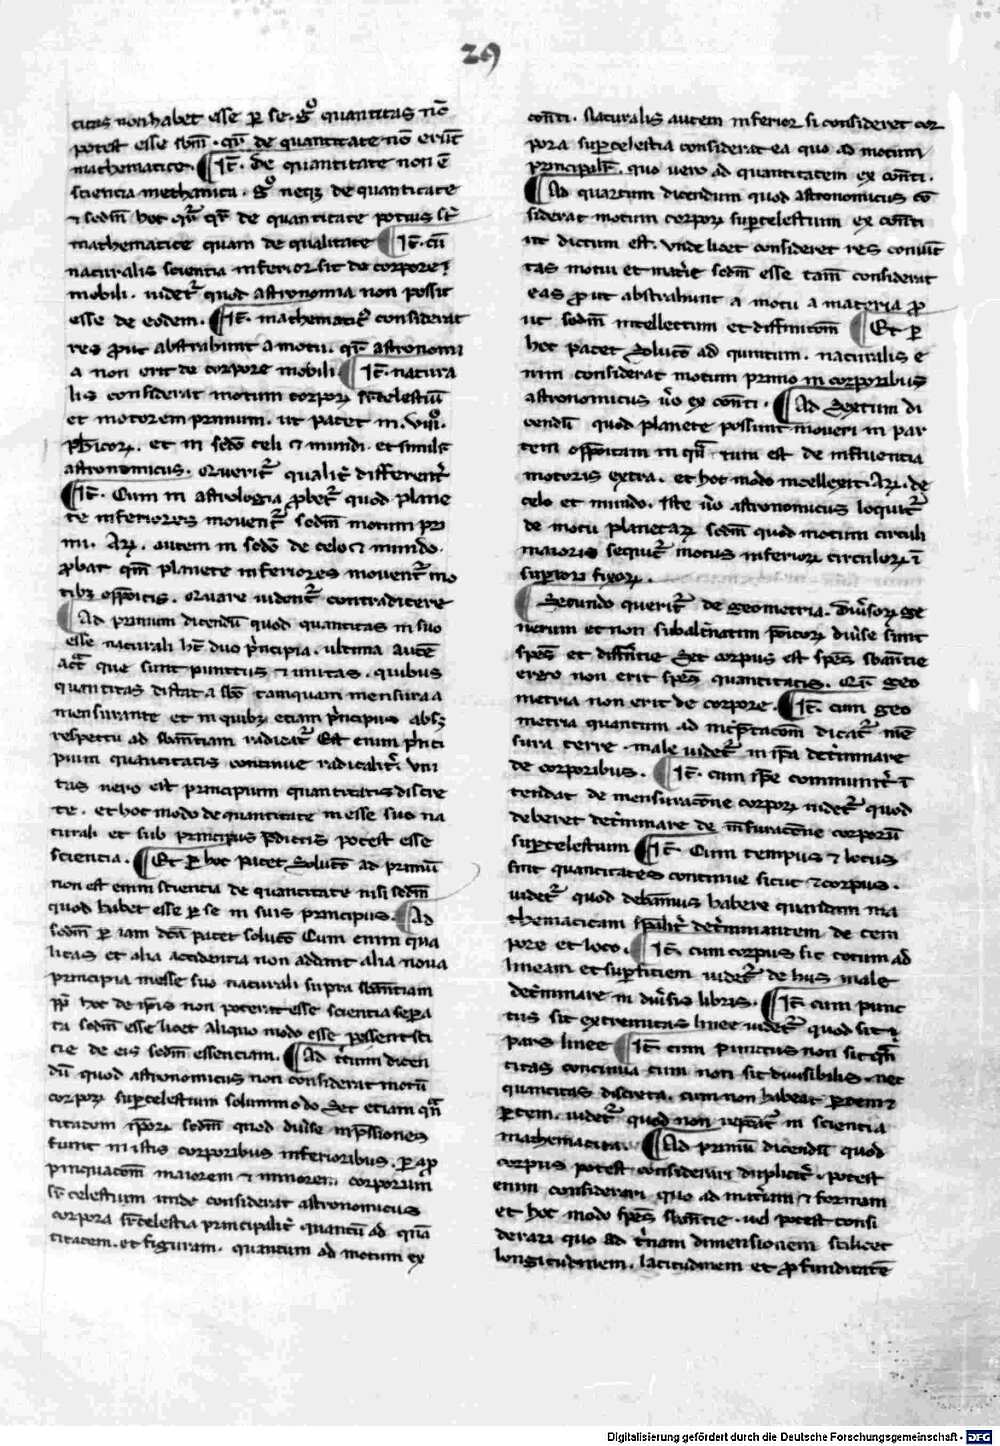 29
titas non habet esse ꝑ se. gͦ quantitas nō
potest esse sbm̄. qr̄ de quantitate nō erūt
mathematice. ¶ It̄. de quantitate non ē
scientia mechanica. gͦ neqꝫ de quantitate
⁊ sodm̄ hoc qr̄ de quantitate potius st̄
mathematice quam de qualitate ¶ It̄. cū
naturalis scientia inferior sit de corpore
mobili. videt᷑ quod astronomia non possit
esse de eodem. ¶ It̄. mathematic᷑ considerat
res ꝓut abstrahunt a motu. qr̄ astronomi
a non erit de corpore mobili ¶ It̄. natura
lis considerat motum corpoꝝ sr̄celestiū
et motorem primum. ut patet in. viijͦ.
phīcoꝝ. et in sc̄do celi ⁊ mundi. et simil᷑
astronomicus. Querit᷑ qualit᷑ different᷑
¶ It̄. Cum in astrologia ꝓbet᷑ quod plane
te inferiores movent᷑ sodm̄ motum pri
mi. Ar̄. autem in sc̄do de celo ⁊ mundo.
ꝓbat qm̄ planete inferiores movent᷑ mo
tibꝫ opp̄oitis. Quare vident᷑ contradicere
¶ Ad primum dicendū quod quantitas in suo
esse naturali hꝫ duo p̄ncipia. ultima autē
act᷑ que sunt punctus ⁊ unitas. quibus
quantitas distat a sbō tamquam mensura a
mensurante et in quibꝫ etiam p̄ncipiis absꝫ
respectu ad sbantiam radicat᷑ Est enim p̄nci
pium quantitatis continue radicalit᷑. uni
tas vero est principium quantitatis discre
te. et hoc modo de quantitate in esse suo na
turali et sub principiis p̄dictis potest esse
scientia. ¶ Et ꝑ hoc patet Solutō ad primū
non est enim scientia de quantitate nisi sodm̄
quod habet esse ꝑ se in suis principiis. ¶ Ad
sodm̄ ꝑ iam dc̄a patet solutō Cum enim qua
litas et alia accidentia non addant alia nova
principia in esse suo naturali supra sbantiam
ꝓp̄ hoc de ip̄is non poterat esse scientia sepera
ta sodm̄ esse licet aliquo modo esse possent sci
tie de eis sodm̄ essenciam. ¶ Ad tcium dicen
dū quod astronomicus non considerat motū
corpoꝝ supercelestium solummodo Set etiam qn̄
titatem ip̄oꝝ sodm̄ quod diuse inp̄ssiones
fiunt in istis corporibus inferioribus. ꝑ ap
pinquacōm maiorem ⁊ minorem corporum
sr̄celestium unde considerat astronomicus
corpora sr̄celestia principalit᷑ quantū ad qn̄a
titatem. et figuram. quantum ad motum ex
cōnti. Naturalis autem inferior si consideret cor
pora sup̄celestia considerat ea quo ad motum
principalit᷑. quo vero ad quantitatem ex cōnti.
¶ Ad quartum dicendum quod astronomicus cō
siderat motum corpoꝝ sup̄celestium ex cōnti
ut dictum est. Unde licet consideret res coniūc
tas motui et mat̄ie sodm̄ esse tam̄ considerat
eas ꝓut abstrahunt a motu a materia ꝓ
ut sodm̄ intellectum et diffinitōm ¶ Et ꝑ
hoc patet Solutō ad quintum. naturalis e
nim considerat motum primo in corporibus
astronomicus v̄o ex cōnti. ¶ Ad Sextum di
cendū quod planete possunt moveri in par
tem opp̄oitam in qn̄tum est de influentia
motoris extra. et hoc modo intellexit. Ar̄. de
celo et mundo. Iste v̄o astronomicus loquit᷑
de motu planetaꝝ sodm̄ quod motum circuli
maioris sequit᷑ motus inferioꝝ circuloꝝ ī
sup̄iori fixoꝝ.
¶ Secundo querit᷑ de geometria. Diusoꝝ ge
nerum et non subalt̄natim positoꝝ diuse sunt
spēs et diffr̄ntie Set corpus est spēs sbantie
ergo non erit spēs quantitatis. Qr̄ geo
metria non erit de corpore. ¶ It̄. cum geo
metria quantum ad int̄p̄tacōm dicat᷑ mē
sura terre. male videt᷑ in ip̄a det̄minare
de corporibus. ¶ It̄. cum ip̄e communit᷑ ī
tendat de mensuracōne corpoꝝ videt᷑ quod
deberet det̄minare de m̄suracōne corporū
sup̄celestium ¶ It̄. Cum tempus ⁊ locus
sint quantitates continue sicut ⁊ corpus.
videt᷑ quod debeamus habere quandam ma
thematicam sp̄alit᷑ det̄minantem de tem
pore et loco. ¶ It̄. cum corpus sit totum ad
lineam et sup̄ficiem videt᷑ de hiis male
det̄minare in diuſis libris. ¶ It̄. cum punc
tus sit extremitas linee videt᷑ quod sit ⁊
pars linee ¶ It̄. cum punctus non sit qn̄
titas continua cum non sit divisibilis. nec
quantitas discreta. cum non habeat ꝑtem ⁊
ꝑtem. videt᷑ quod non repiat᷑ in scientia
mathematica. ¶ Ad primū dicendū quod
corpus potest considerari duplicit᷑. potest
enim considerari quo ad mat̄iam ⁊ formam
et hoc modo spēs sbantie. vel potest consi
derari quo ad t̄nam dimensionem scilicet
longitudinem. latitudinem et ꝓfunditatē
Digitalisierung gefördert durch die Deutsche Forschungsgemeinschaft - DFG